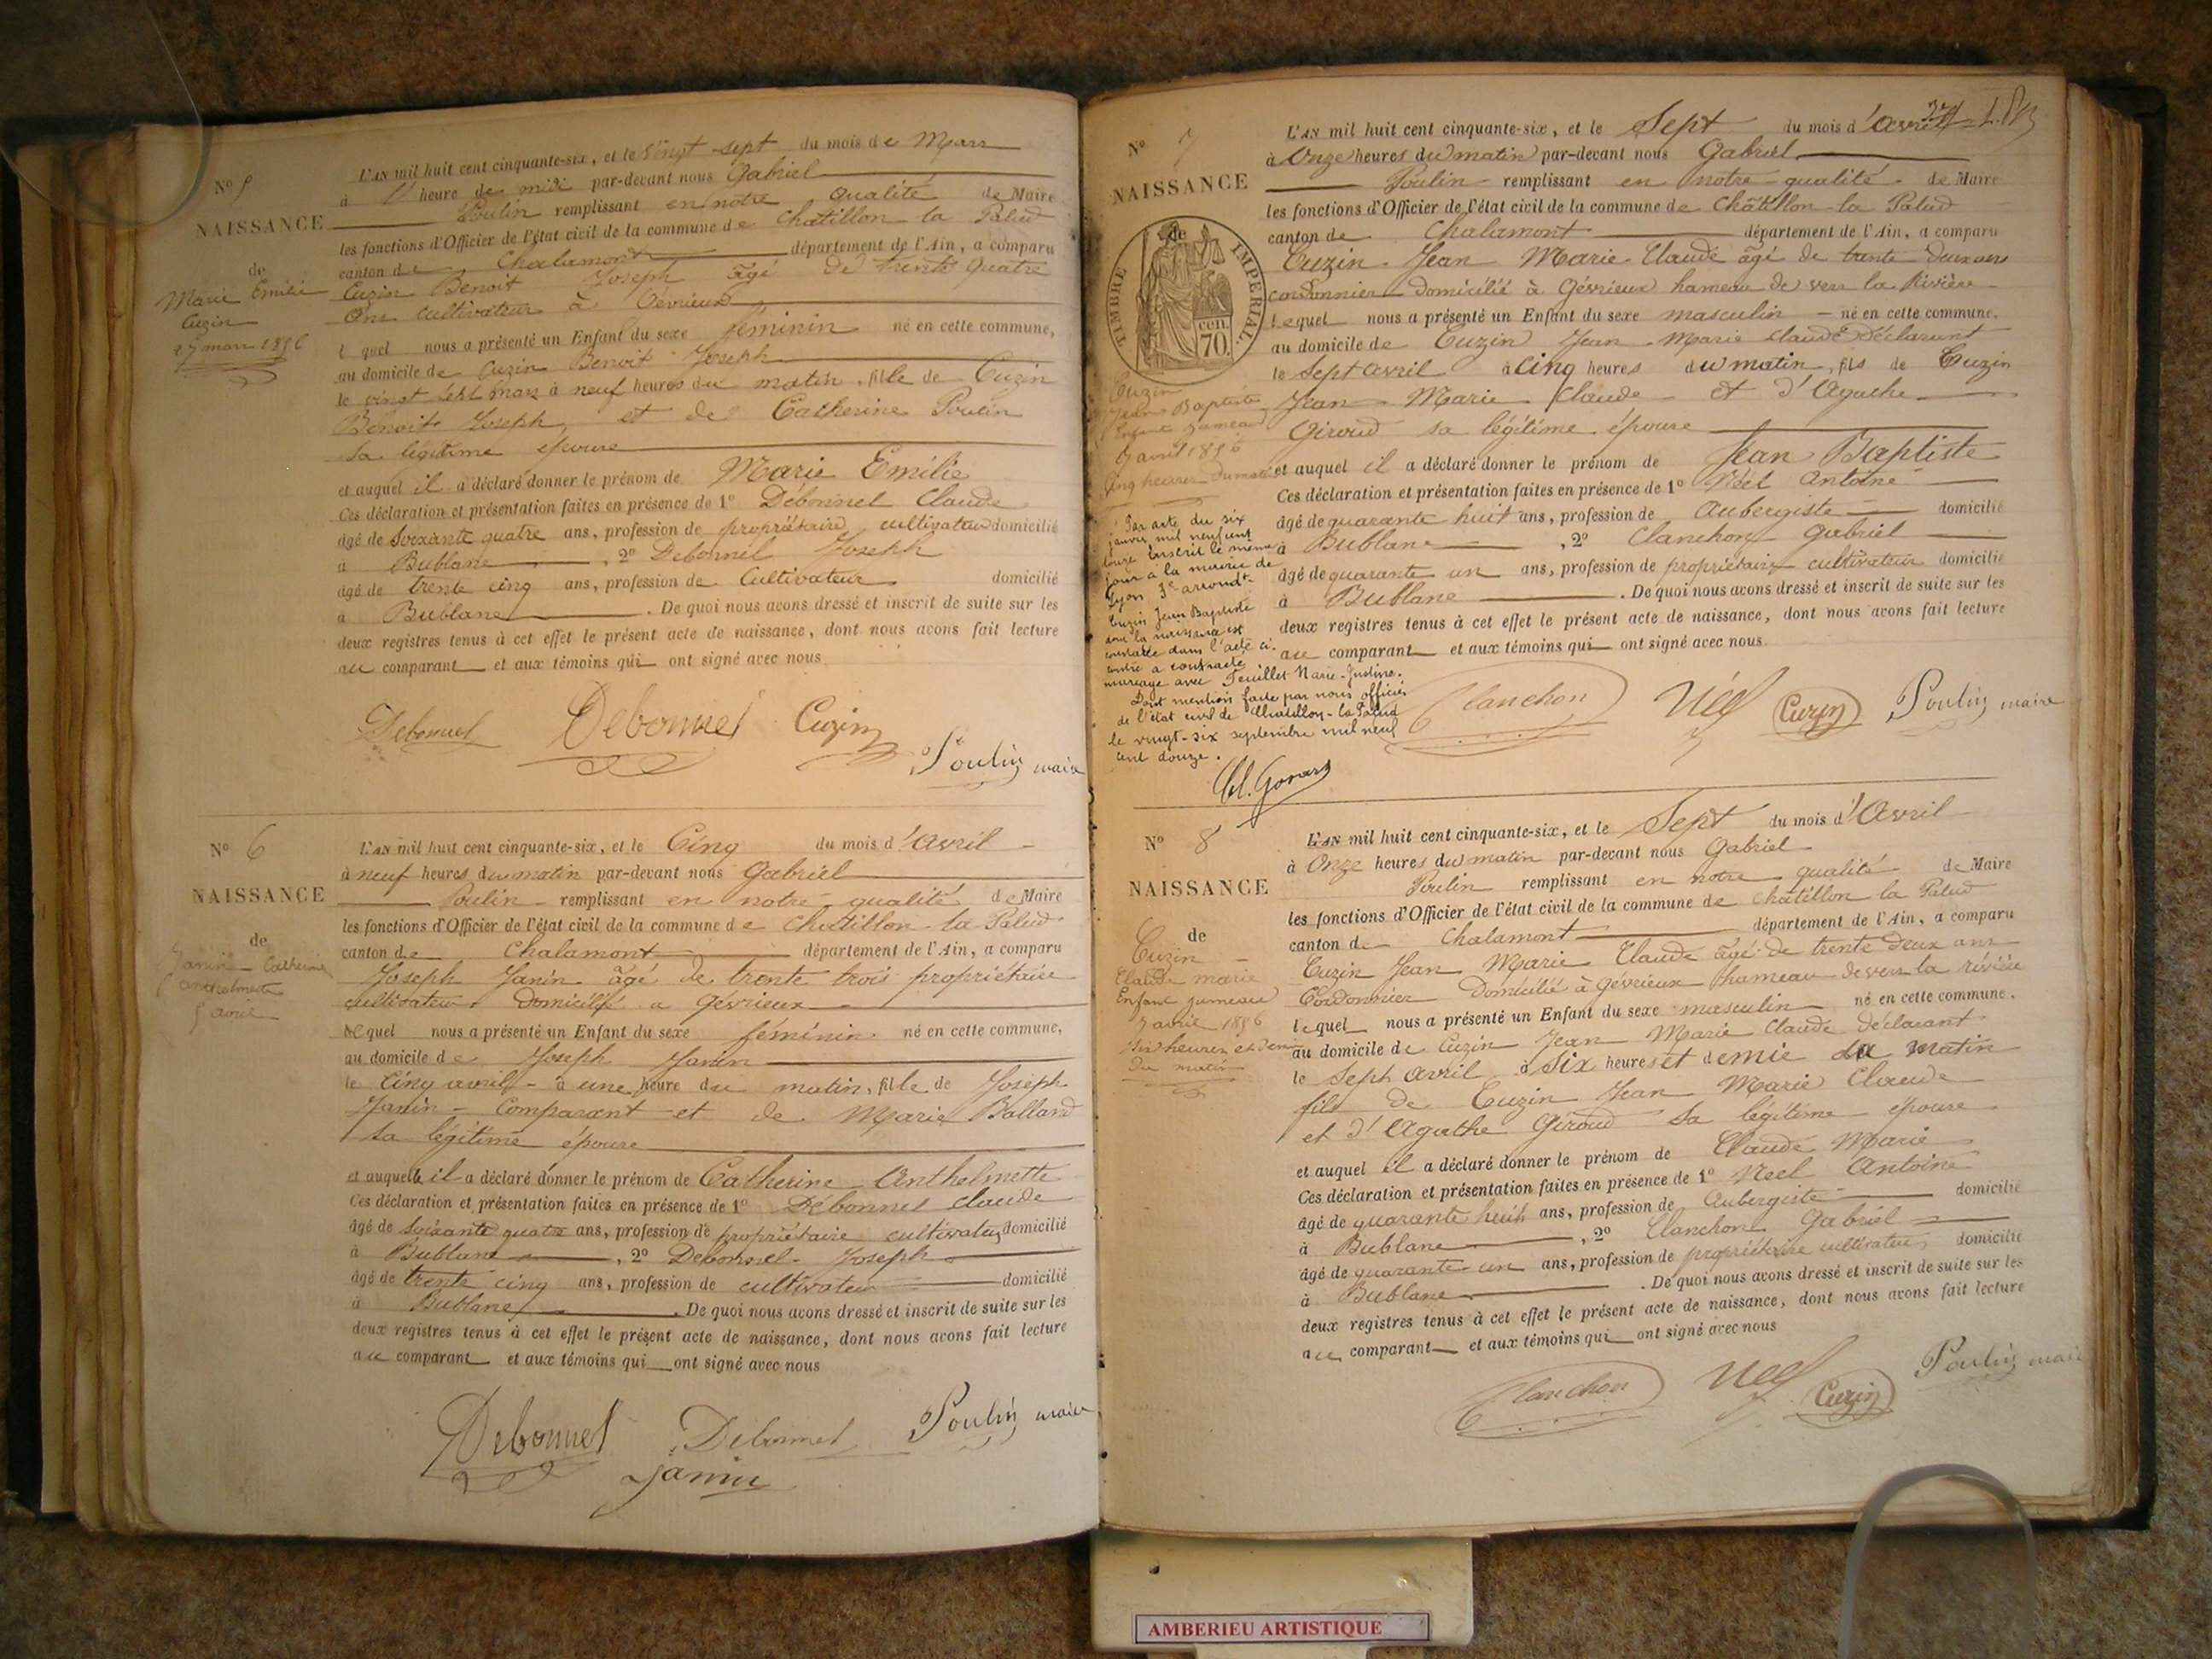 Nº 5
NAISSANCE
de
Marie Emilie
Cuzin
27 mars 1856
L'AN mil huit cent cinquante-six, et le vingt-sept du mois de Mars
à heure de midi par-devant nous Gabriel
Poulin remplissant en notre qualité de Maire
les fonctions d'Officier de l'état civil de la commune de Chatillon la Palud
canton de Chalamont département de l'Ain, a comparu
Cuzin Benoit Joseph âgé de trente quatre
Ans cultivateur à Gévrieux
lequel nous a présenté un Enfant du sexe féminin né en cette commune,
au domicile de Cuzin Benoit Joseph
le vingt sept mars à neuf heures du matin, fille de Cuzin
Benoit Joseph, et de Catherine Poulin
sa légitime épouse
et auquel il a déclaré donner le prénom de Marie Emilie
Ces déclaration et présentation faites en présence de 1º Débonnel Claude
âgé de Soixante quatre ans, profession de propriétaire cultivateur domicilié
à Bublane, 2º Debonnel Joseph
âgé de trente cinq ans, profession de Cultivateur domicilié
à Bublane. De quoi nous avons dressé et inscrit de suite sur les
deux registres tenus à cet effet le présent acte de naissance, dont nous avons fait lecture
au comparant et aux témoins qui ont signé avec nous
Debonnel Debonnel Cuzin
Poulin maire
Nº 6
NAISSANCE
de
Janin Catherine
anthelmette
5 avril
L'AN mil huit cent cinquante-six, et le Cinq du mois d'avril
à neuf heures du matin par-devant nous Gabriel
Poulin remplissant en notre qualité de Maire
les fonctions d'Officier de l'état civil de la commune de Chatillon la Palud
canton de Chalamont département de l'Ain, a comparu
Joseph Janin âgé de trente trois propriétaire
cultivateur domicilié a Gévrieux
lequel nous a présenté un Enfant du sexe féminin né en cette commune,
au domicile de Joseph Janin
le cinq avril à une heure du matin, fille de Joseph
Janin Comparant et de Marie Balland
sa légitime épouse
et auquelle il a déclaré donner le prénom de Catherine Anthelmette
Ces déclaration et présentation faites en présence de 1º Débonnel Claude
âgé de Soixante quatre ans, profession de propriétaire cultivateur domicilié
à Bublane, 2º Debonnel Joseph
âgé de trente cinq ans, profession de cultivateur domicilié
à Bublane. De quoi nous avons dressé et inscrit de suite sur les
deux registres tenus à cet effet le présent acte de naissance, dont nous avons fait lecture
au comparant et aux témoins qui ont signé avec nous
Debonnel Debonnel Poulin maire
Janin
Nº 7
NAISSANCE
de
TIMBRE IMPERIAL
70 cen.
Cuzin
Jean Baptiste
Enfant Jumeau
7 avril 1856
cinq heures du matin
Par acte du six
janvier mil neuf cent
douze inscrit le même
jour à la mairie de
Lyon 3e arrondt
Cuzin Jean Baptiste
dont la naissance est
constatée dans l'acte ci-
contre a contracté
mariage avec Feuillet Marie-Justine.
Dont mention faite par nous officier
de l'état civil de Chatillon-la-Palud
le vingt-six septembre mil neuf
cent douze.
L'AN mil huit cent cinquante-six, et le Sept du mois d'avril
à Onze heures du matin par-devant nous Gabriel
Poulin remplissant en notre qualité de Maire
les fonctions d'Officier de l'état civil de la commune de Châtillon-la Palud
canton de Chalamont département de l'Ain, a comparu
Cuzin Jean Marie Claude âgé de trante deux ans
cordonnier domicilié à Gévrieux hameau de vers la Rivière
lequel nous a présenté un Enfant du sexe masculin né en cette commune,
au domicile de Cuzin Jean Marie Claude Déclarant
le Sept avril à Cinq heures du matin, fils de Cuzin
Jean Marie Claude et d'Agathe
Giroud sa légitime épouse
et auquel il a déclaré donner le prénom de Jean Baptiste
Ces déclaration et présentation faites en présence de 1º Néel Antoine
âgé de quarante huit ans, profession de Aubergiste domicilié
à Bublane, 2º Clanchon Gabriel
âgé de quarante un ans, profession de propriétaire cultivateur domicilié
à Bublane. De quoi nous avons dressé et inscrit de suite sur les
deux registres tenus à cet effet le présent acte de naissance, dont nous avons fait lecture
au comparant et aux témoins qui ont signé avec nous.
Clanchon Néel Cuzin Poulin maire
Nº 8
NAISSANCE
de
Cuzin
Claude marie
Enfant jumeau
7 avril 1856
Six heures et demie
du matin
L'AN mil huit cent cinquante-six, et le Sept du mois d'Avril
à Onze heures du matin par-devant nous Gabriel
Poulin remplissant en notre qualité de Maire
les fonctions d'Officier de l'état civil de la commune de Châtillon la Palud
canton de Chalamont département de l'Ain, a comparu
Cuzin Jean Marie Claude âgé de trente deux ans
Cordonnier Domicilié à Gévrieux hameau de vers la rivière
lequel nous a présenté un Enfant du sexe masculin né en cette commune,
au domicile de Cuzin Jean Marie Claude déclarant
le Sept avril à Six heures et demie du matin
fils de Cuzin Jean Marie Claude
et d'Agathe Giroud sa légitime épouse
et auquel il a déclaré donner le prénom de Claude Marie
Ces déclaration et présentation faites en présence de 1º Néel Antoine
âgé de quarante huit ans, profession de Aubergiste domicilié
à Bublane, 2º Clanchon Gabriel
âgé de quarante un ans, profession de propriétaire cultivateur domicilié
à Bublane. De quoi nous avons dressé et inscrit de suite sur les
deux registres tenus à cet effet le présent acte de naissance, dont nous avons fait lecture
au comparant et aux témoins qui ont signé avec nous
Clanchon Néel Cuzin Poulin maire
AMBERIEU ARTISTIQUE